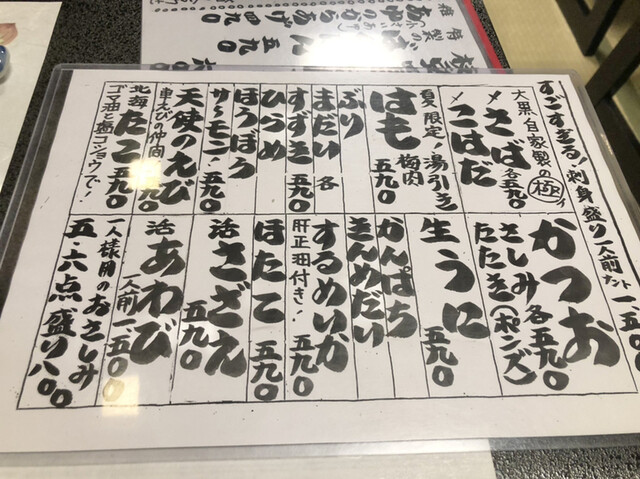 すごすぎる!刺身盛り一人前
大黒自家製の極
〆さば
〆こはだ
各五九〇
夏限定!湯引き
はも
梅肉
五九〇
ぶり
まだい
すずき
各五九〇
ひらめ
ほうぼう
サーモン!
五九〇
天使のえび
車えびの仲間
五九〇
北海たこ
五九〇
ゴマ油と塩コショウで!
かつお
さしみ
たたき(ポンズ)
各五九〇
生うに
五九〇
かんぱち
きんめだい
するめいか
肝正油付き!
五九〇
ほたて
五九〇
活さざえ
五九〇
活あわび
一人前一、五〇〇
一人様用のおさしみ
五・六点盛り八〇〇